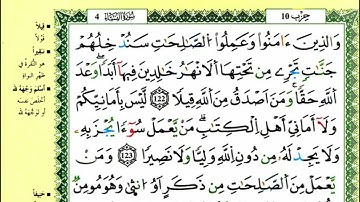 حزب 10
سورة النساء 4
وَالَّذِينَ ءَامَنُوا وَعَمِلُوا الصَّٰلِحَٰتِ سَنُدْخِلُهُمْ
جَنَّٰتٍ تَجْرِي مِن تَحْتِهَا الْأَنْهَٰرُ خَٰلِدِينَ فِيهَا أَبَدًا وَعْدَ
اللَّهِ حَقًّا وَمَنْ أَصْدَقُ مِنَ اللَّهِ قِيلًا 122 لَّيْسَ بِأَمَانِيِّكُمْ
وَلَا أَمَانِيِّ أَهْلِ الْكِتَٰبِ مَن يَعْمَلْ سُوءًا يُجْزَ بِهِ
وَلَا يَجِدْ لَهُ مِن دُونِ اللَّهِ وَلِيًّا وَلَا نَصِيرًا 123 وَمَن
يَعْمَلْ مِنَ الصَّٰلِحَٰتِ مِن ذَكَرٍ أَوْ أُنثَىٰ وَهُوَ مُؤْمِنٌ
قِيلًا
قَوْلًا
نَقِيرًا
هو النُّقرة في
ظهر النواة
أسلم وجهه لله
أخلص نفسه
أو توجهه لله
حنيفًا